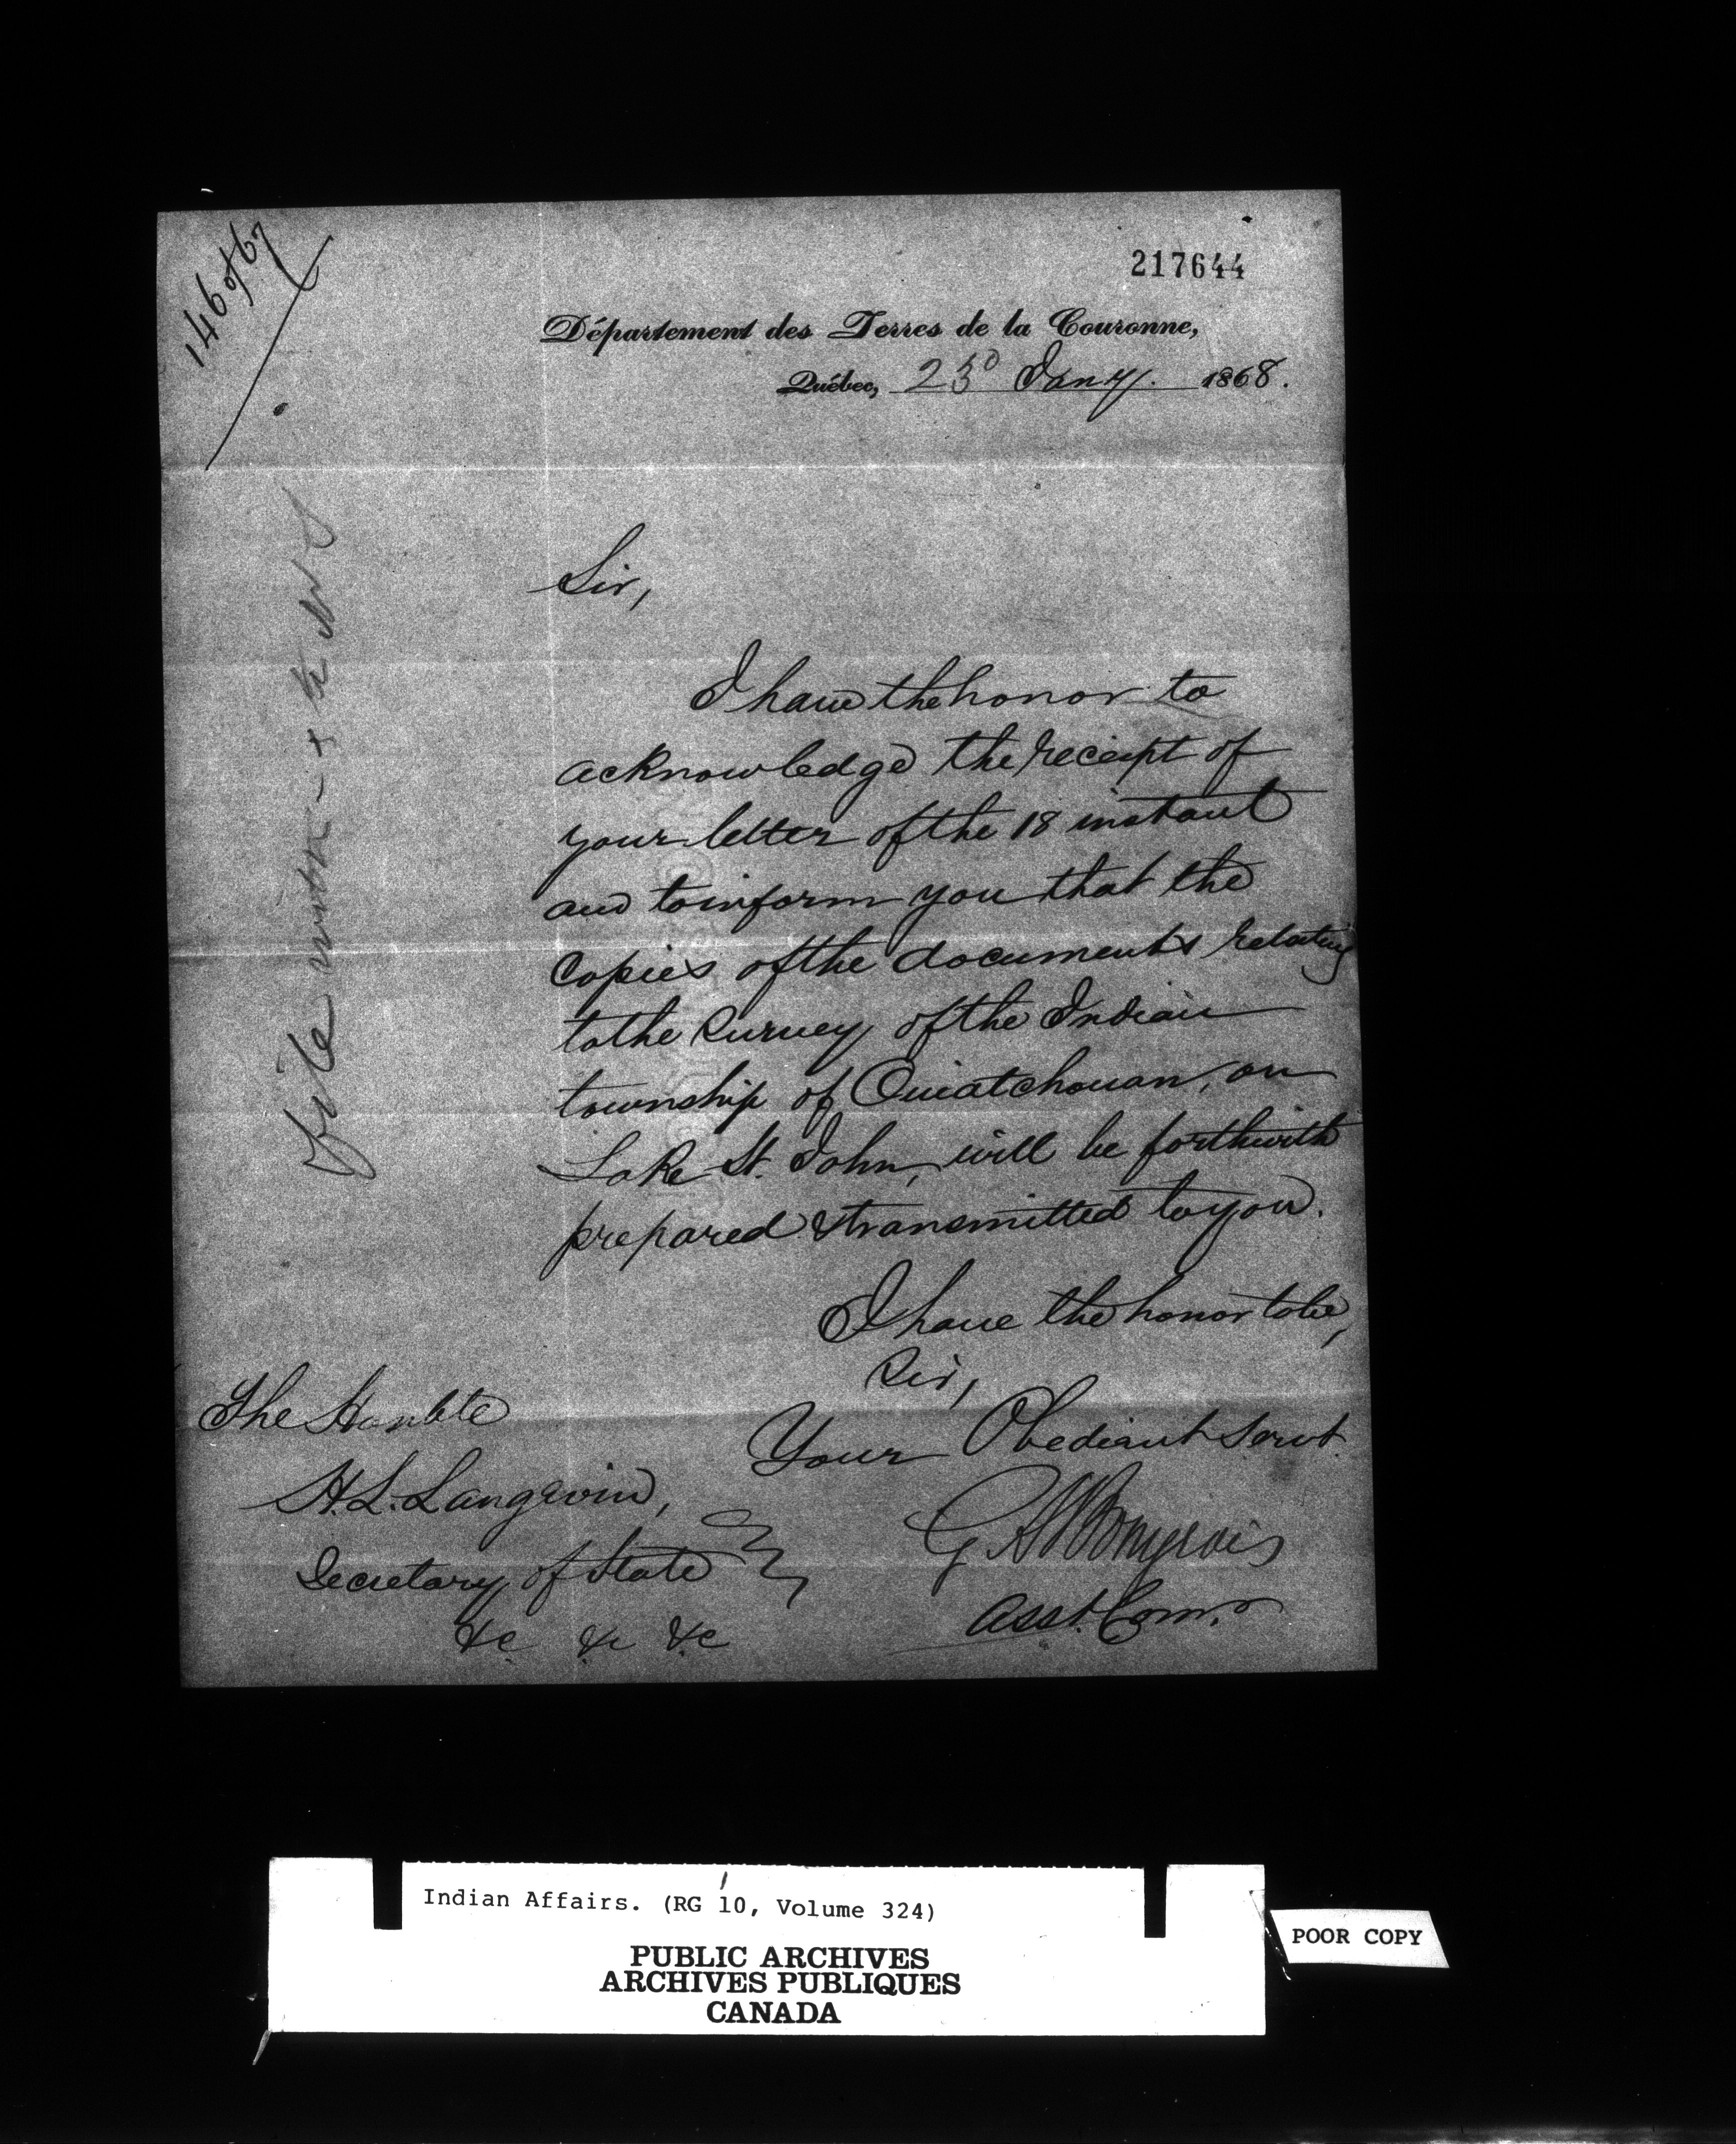 146 of 67
217644
Département des Terres de la Couronne,
Québec, 23d Jany. 1868.
Sir,
I have the honor to
acknowledge the receipt of
your letter of the 18 instant
and to inform you that the
Copies of the documents relating
to the Survey of the Indian
township of Ouiatchouan, on
Lake St. John, will be forthwith
prepared & transmitted to you.
I have the honor to be,
Sir,
Your Obedient Servt.
Asst. Comr.
The Honble
H. L. Langevin,
Secretary of State
&c &c &c
File
Indian Affairs. (RG 10, Volume 324)
PUBLIC ARCHIVES
ARCHIVES PUBLIQUES
CANADA
POOR COPY